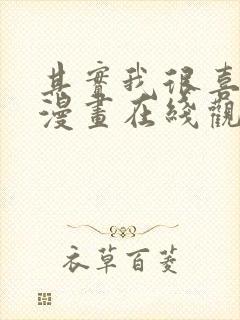 其實我很喜
漫畫在綫觀
衣草百菱